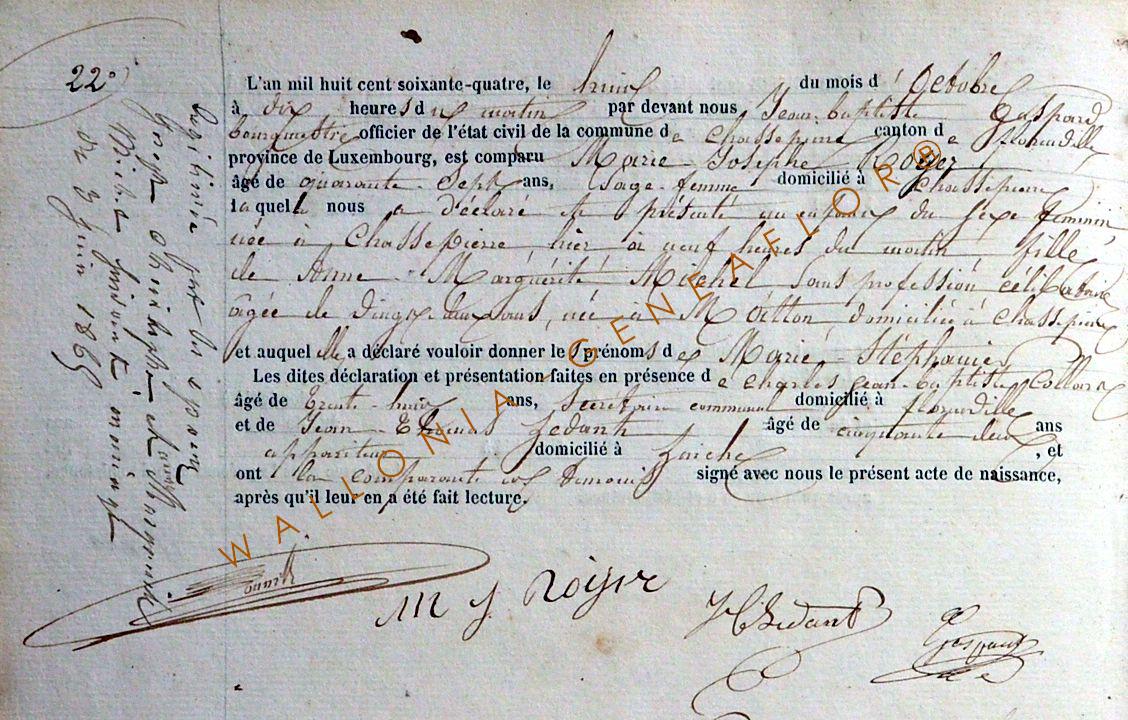 22°
L'an mil huit cent soixante-quatre, le huit du mois d'Octobre
à dix heures du matin par devant nous Jean-baptiste Gaspard
bourgmestre officier de l'état civil de la commune de Chassepierre canton de florenville,
province de Luxembourg, est comparu Marie-Josephe Royer
âgé de quarante-Sept ans, Sage-femme domicilié à Chassepierre
laquelle nous a déclaré et présenté un enfant du Sexe feminin,
née à Chassepierre hier à neuf heures du matin, fille
de Anne-Marguérite Michel Sans profession célibataire
âgée de Vingt-deux ans, née à domiciliée à Chassepierre
et auquel elle a déclaré vouloir donner les prénoms de Marie-Stéphanie
Les dites déclaration et présentation faites en présence de Charles Jean-baptiste
âgé de trente-huit ans, Secrétaire communal domicilié à florenville
et de Jean-Thomas âgé de cinquante deux ans
appariteur domicilié à , et
ont la comparante et les témoins signé avec nous le présent acte de naissance,
après qu'il leur en a été fait lecture.
Légitimée par les époux
Joseph
Michel suivant mariage
du 3 Juin 1865
M J. Roijer
Gaspard
WALLONIA-GENEAFLOR®